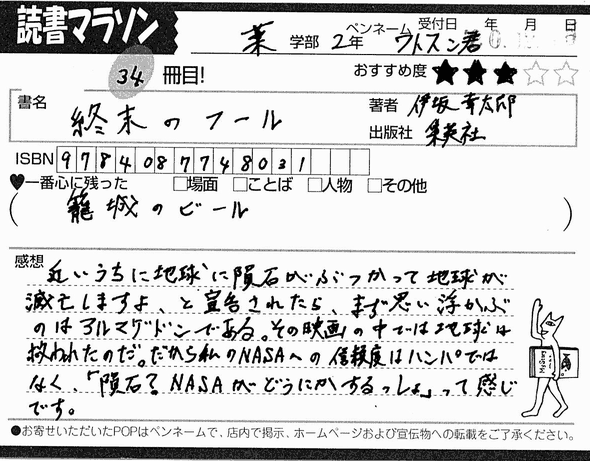 読書マラソン
薬 学部 2年 ペンネーム ワトスン君 受付日 年 月 日
34 冊目! おすすめ度 ★★★☆☆
書名 終末のフール 著者 伊坂幸太郎
出版社 集英社
ISBN 9784087748031
♥一番心に残った □場面 □ことば □人物 □その他
( 籠城のビール )
感想
近いうちに地球に隕石がぶつかって地球が
滅亡しますよ、と宣告されたら、まず思い浮かぶ
のはアルマゲドンである。その映画の中では地球は
救われたのだ。だから私のNASAへの信頼度はハンパでは
なく、「隕石?NASAがどうにかするっしょ」って感じ
です。
●お寄せいただいたPOPはペンネームで、店内で掲示、ホームページおよび宣伝物への転載をご了承ください。